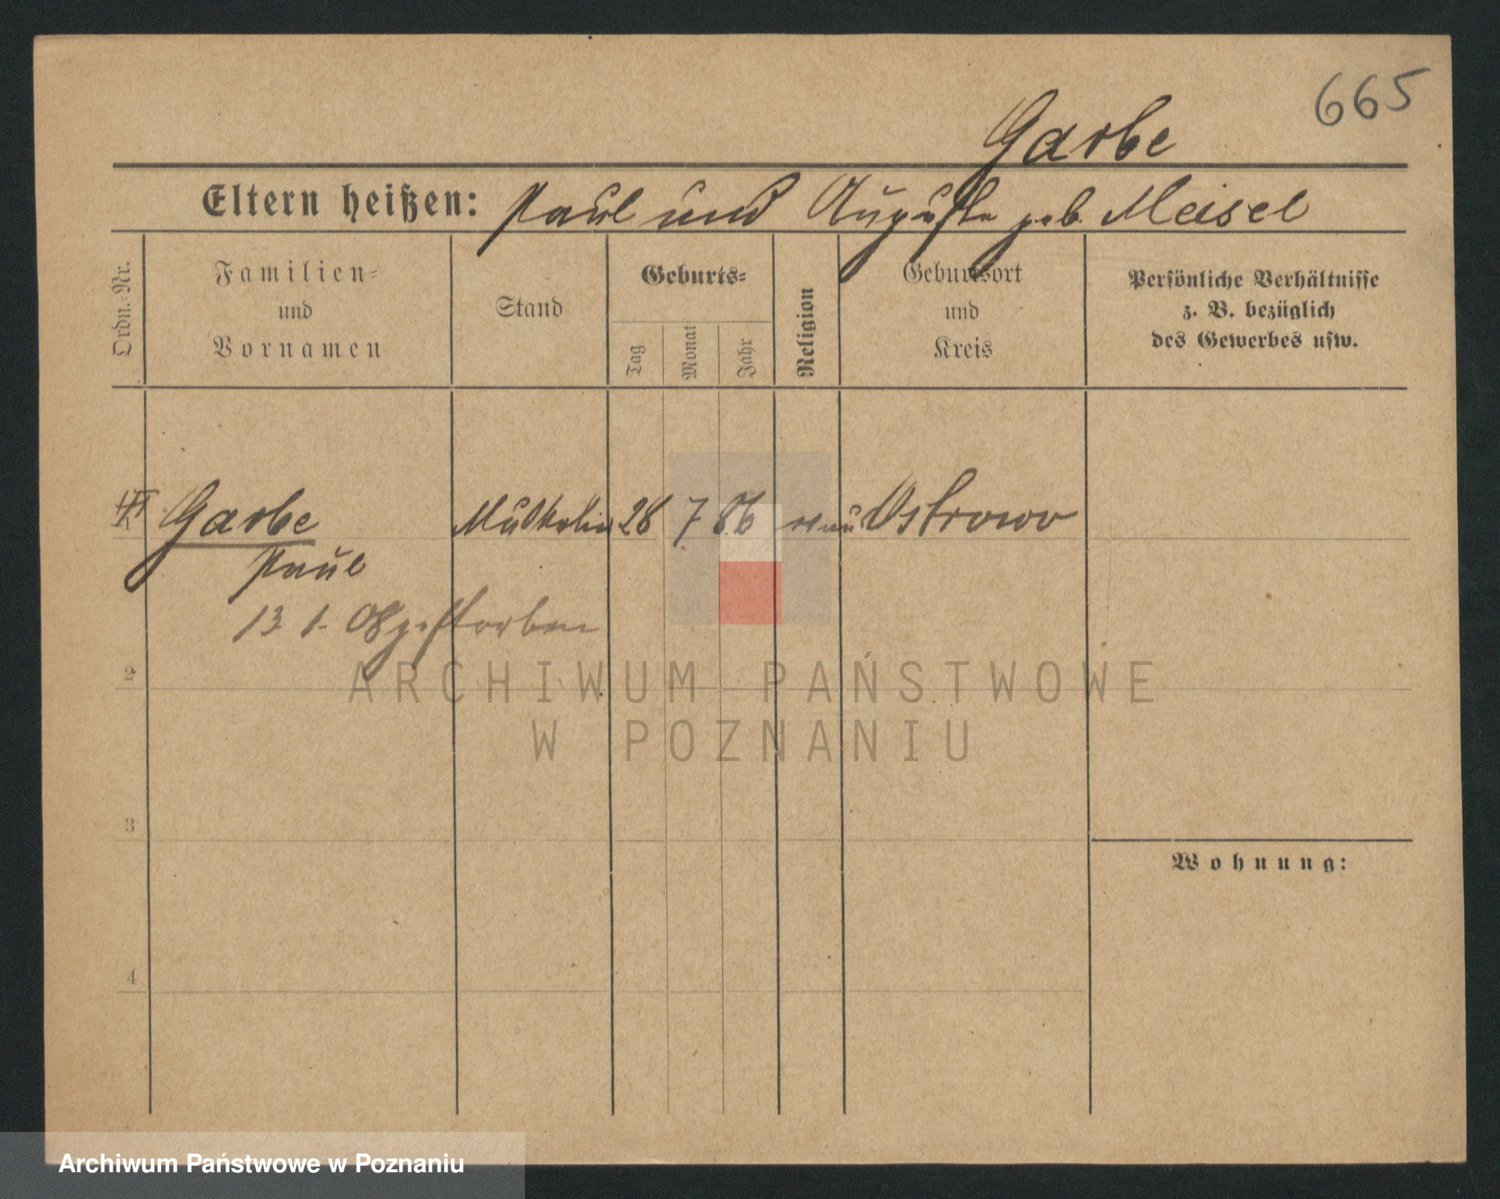 665
Garbe
Eltern heißen: Paul und Auguste geb. Meisel
Ordn.-Nr.
Familien-
und
Vornamen
Stand
Geburts-
Tag
Monat
Jahr
Religion
Geburtsort
und
Kreis
Persönliche Verhältnisse
z. B. bezüglich
des Gewerbes usw.
Garbe 28 7. 86 Ostrowo
Paul
13. 1. 08 gestorben
2
3
4
Wohnung:
ARCHIWUM PAŃSTWOWE
W POZNANIU
Archiwum Państwowe w Poznaniu